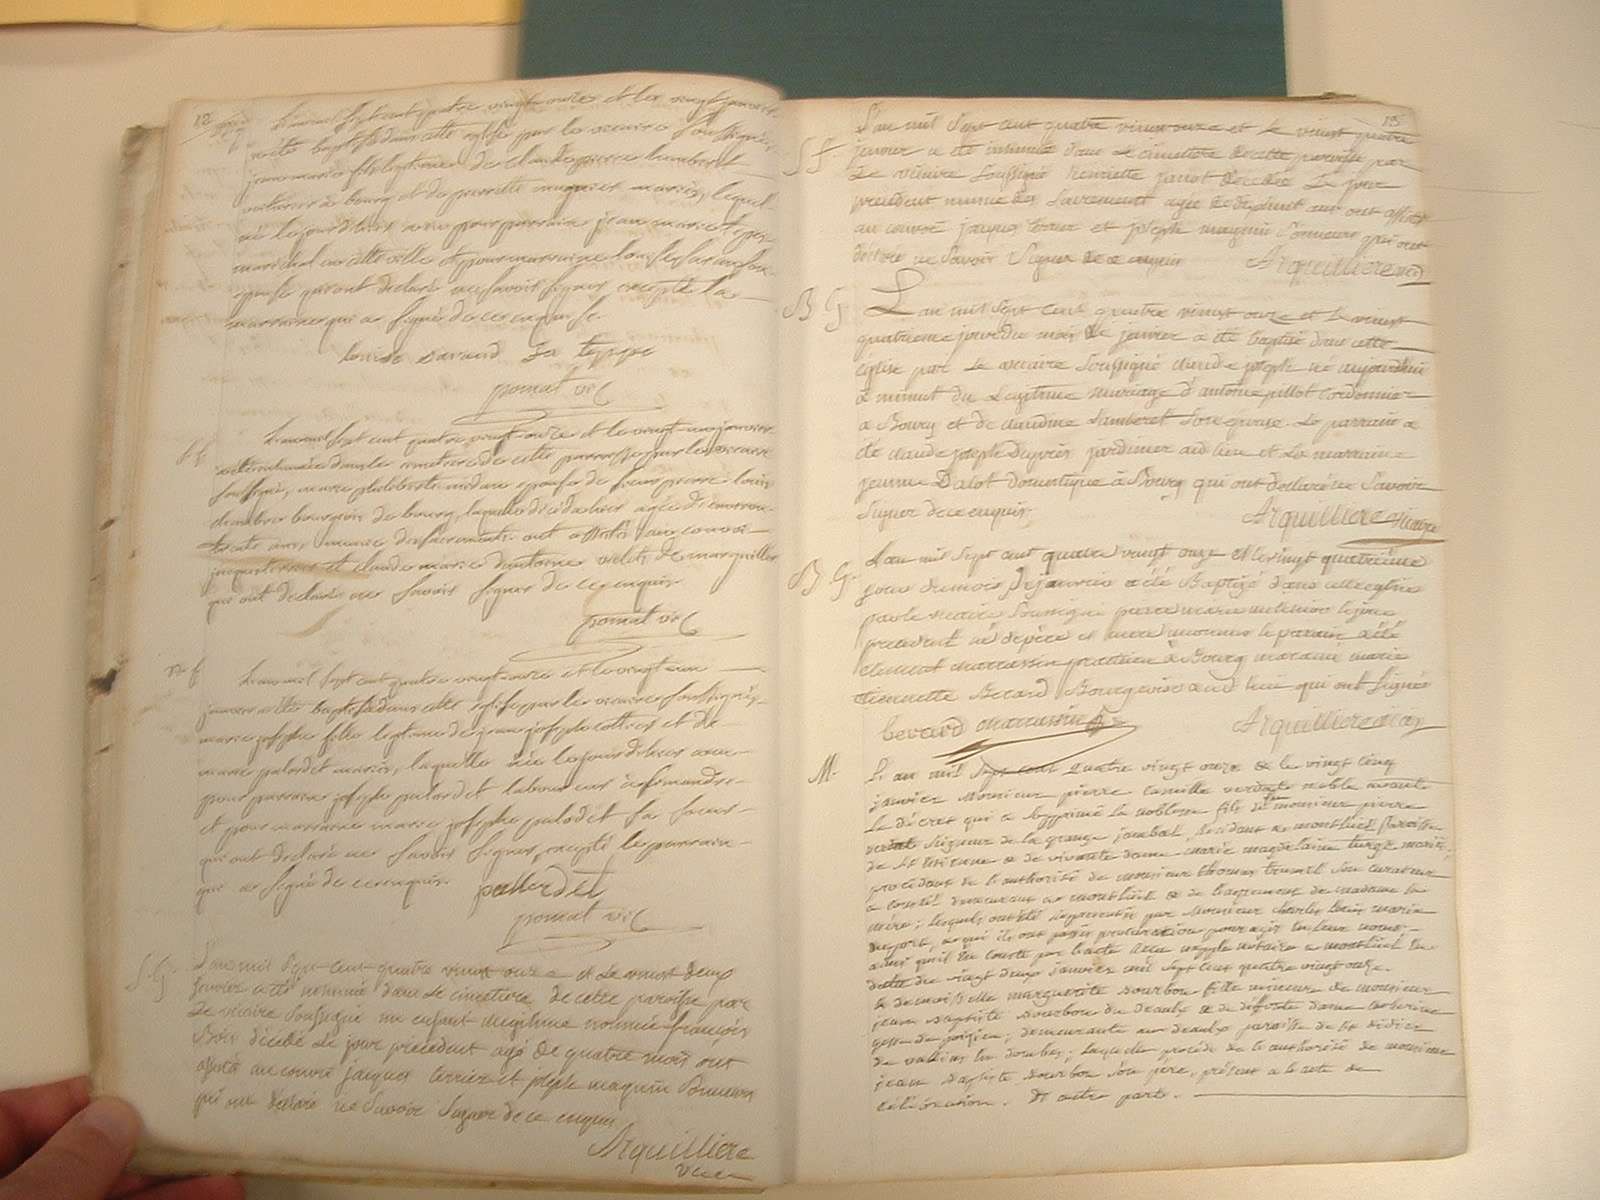 12
L'an mil sept cent quatre vingt onze et le vingt janvier
a été baptisé dans cette église par le vicaire soussigné,
jean marie fils légitime de claude pierre humbert
voiturier à bourg et de pierrette muguet mariés, lequel
né le jour d'hier a eu pour parrain jean marie
marechal en cette ville et pour marraine louise savaud son
epouse qui ont declaré ne savoir signer excepté la
marraine qui a signé de ce enquise
louise savaud fa
pomat vic
S f
L'an mil sept cent quatre vingt onze et le vingt un janvier
a été inhumée dans le cimetiere de cette parroisse par le vicaire
soussigné, marie philiberte epouse de sieur pierre louis
chambre bourgeois de bourg, laquelle décéda hier agée d'environ
trente ans, munie des sacrements. ont assistés au convoi
jacques terrier et claude marie dantoine valets de marguillier
qui ont declaré ne savoir signer de ce enquis
pomat vic
B f
L'an mil sept cent quatre vingt onze et le vingt un
janvier a été baptisée dans cette église par le vicaire soussigné,
marie josephe fille légitime de jean joseph et de
marie palordet mariés, laquelle née le jour d'hier a eu
pour parrain joseph palordet laboureur
et pour marraine marie josephe palordet sa soeur
qui ont declaré ne savoir signer, excepté le parrain
qui a signé de ce enquis. pallordet
pomat vic
S G
L'an mil sept cent quatre vingt onze et le vingt deux
janvier a été inhumé dans le cimetiere de cette paroisse par
le vicaire soussigné un enfant illegitime nommé françois
décédé le jour précédent agé de quatre mois ont
assisté au convoi jacques terrier et joseph maquin sonneurs
qui ont déclaré ne savoir signer de ce enquis
Arquilliere
vicaire
13
S f
L'an mil sept cent quatre vingt onze et le vingt quatre
janvier a été inhumée dans le cimetiere de cette paroisse par
le vicaire soussigné henriette janot decedée le jour
precedent munie des sacrements agée de dix huit ans ont assisté
au convoi jacques terrier et joseph maquin sonneurs qui ont
declaré ne savoir signer de ce enquis Arquilliere vic
B G
L'an mil sept cent quatre vingt onze et le vingt
quatrieme jour du mois de janvier a été baptisé dans cette
église par le vicaire soussigné claude joseph né aujourdhui
à minuit du legitime mariage d'antoine pillot cordonnier
à Bourg et de claudine Lambert son epouse. Le parrain a
été claude joseph jardinier aud. lieu et la marraine
jeanne Dalot domestique à Bourg qui ont declaré ne savoir
signer de ce enquis.
Arquilliere vicaire
B G
L'an mil sept cent quatre vingt onze et le vingt quatrième
jour du mois de janvier a été Baptizé dans cette eglise
par le vicaire soussigné pierre marie le jour
precedent né de père et mere inconnus le parain a été
clement marrassin praticien à Bourg maraine marie
etiennette Berard Bourgeoise aud lieu qui ont signés
berard marrassin Arquilliere vic
M.
L'an mil sept cent quatre vingt onze & le vingt cinq
janvier Monsieur pierre camille verdat noble avant
le décret qui a supprimé la noblesse fils de monsieur pierre
verdat seigneur de la grange jambel, résidant à montluel paroisse
de St Etienne & de vivante dame marie magdelaine turge mariés,
procédant de l'authorité de monsieur thomas son curateur
a conseil demeurant à montluel & de l'agrément de madame sa
mère; lesquels ont été représentés par Monsieur charles louis marie
duport, a qui ils ont passé procuration pour agir en leur nom,
ainsi qu'il en conste par l'acte notaire à montluel en
datte du vingt deux janvier mil sept cent quatre vingt onze.
& demoiselle marguerite dourbon fille mineure de monsieur
jean baptiste dourbon du deaulx & de deffunte dame catherine
demeurante au deaulx paroisse de St Didier
de valeins en dombes; laquelle procéde de l'authorité de monsieur
jean baptiste dourbon son père, présent a l'acte de
célébration. D'autre part.